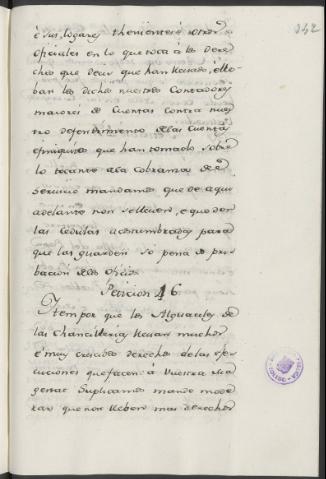 342
é sus logares thenientes é otros
oficiales en lo que toca á los dere
chos que deven que han llevado, é llo
ban los dichos nuestros Contadores
maiores de Cuentas contra nues
tro defendimiento de las Cuentas
é finiquitos que han tomado sobre
lo tocante a la Cobranza de
Servicio mandamos que de aqui
adelante non se lleven, e que den
las cedulas acostumbradas para
que las guarden so pena de pri
bacion de los oficios
Peticion 46
Y tem por que los Alguaciles de
las Chancillerias llevan muchos
é muy crecidos derechos de las eje
cuciones que facen á Vuestra Ma
gestad Suplicamos mande mode
rar que non lleben mas derechos